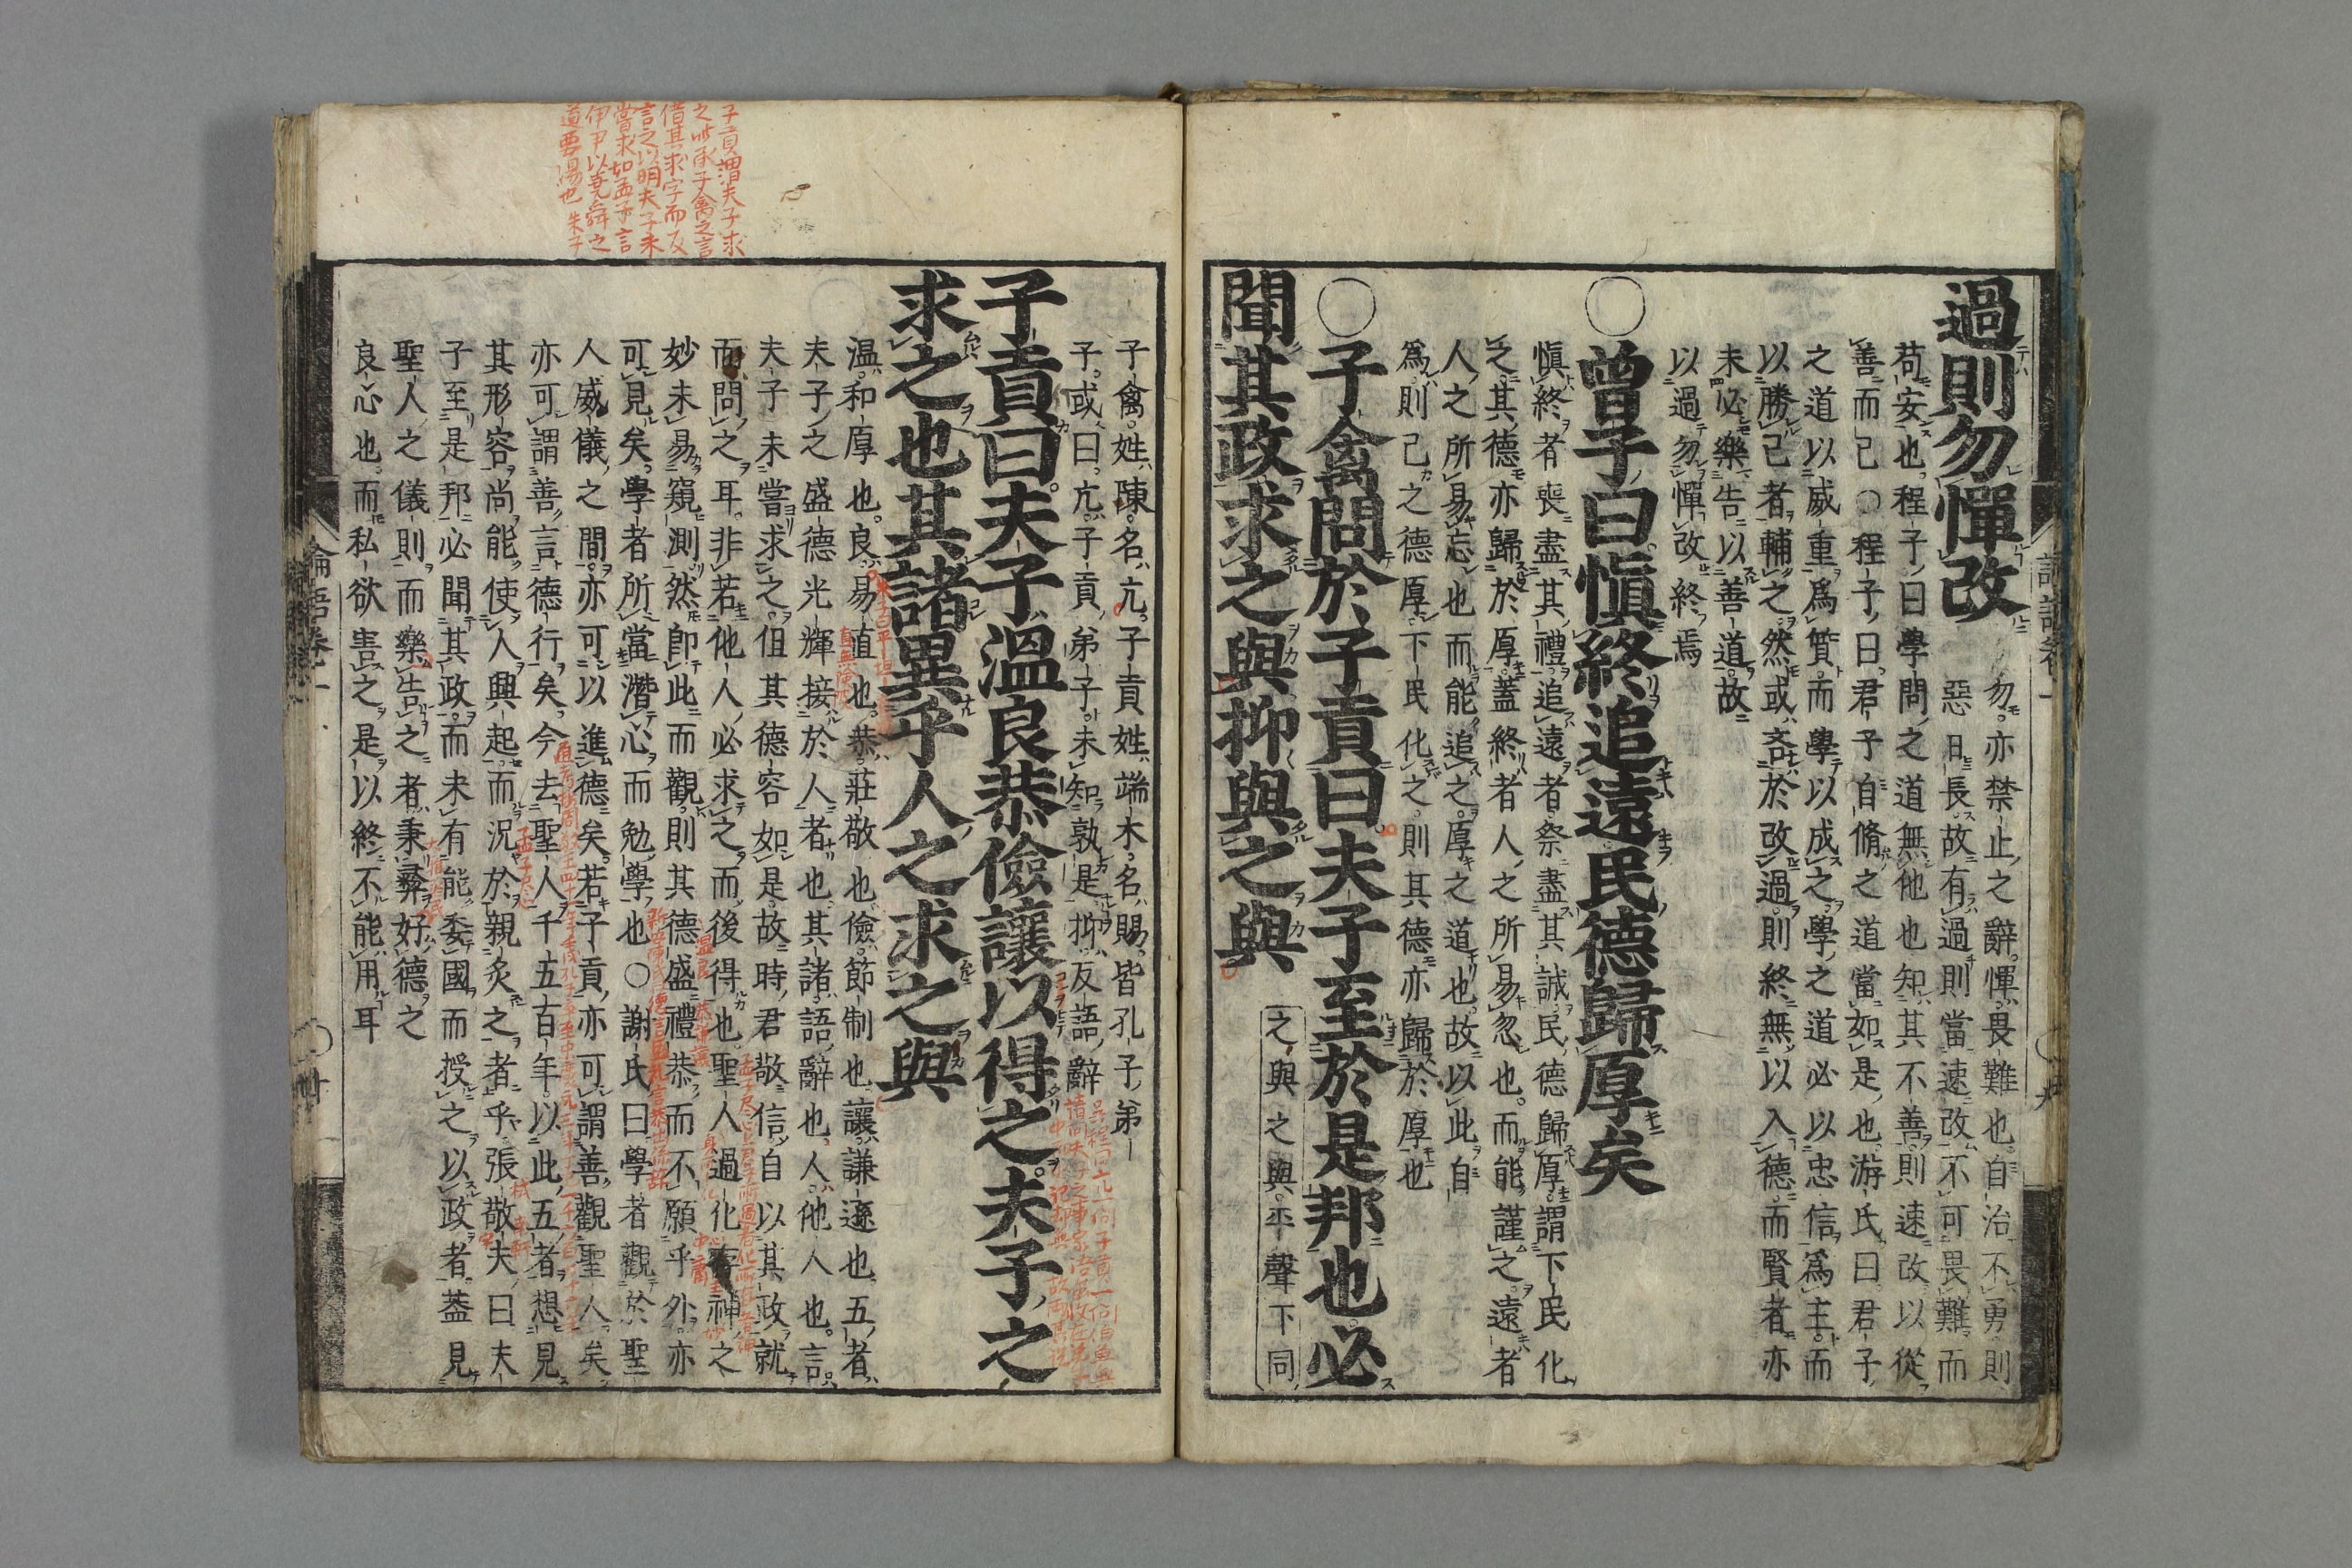 過則勿憚改
勿亦禁止之辭憚畏難也自治不勇則
惡日長故有過則當速改不可畏難而
苟安也程子曰學問之道無他也知其不善則速改以從
善而已○程子曰君子自脩之道當如是也游氏曰君子
之道以威重爲質而學以成之學之道必以忠信爲主而
以勝己者輔之然或吝於改過則終無以入德而賢者亦
未必樂告以善道故
以過勿憚改終焉
○曾子曰愼終追遠民德歸厚矣
愼終者喪盡其禮追遠者祭盡其誠民德歸厚謂下民化
之其德亦歸於厚蓋終者人之所易忽也而能謹之遠者
人之所易忘也而能追之厚之道也故以此自
爲則己之德厚下民化之則其德亦歸於厚也
○子禽問於子貢曰夫子至於是邦也必
聞其政求之與抑與之與
之與之與平聲下同
子禽姓陳名亢子貢姓端木名賜皆孔子弟
子或曰亢子貢弟子未知孰是抑反語辭
子貢曰夫子溫良恭儉讓以得之夫子之
求之也其諸異乎人之求之與
温和厚也良易直也恭莊敬也儉節制也讓謙遜也五者
夫子之盛德光輝接於人者也其諸語辭也人他人也言
夫子未當求之但其德容如是故時君敬信自以其政就
而問之耳非若他人必求之而後得也聖人過化存神之
妙未易窺測然卽此而觀則其德盛禮恭而不願乎外亦
可見矣學者所當潛心而勉學也○謝氏曰學者觀於聖
人威儀之間亦可以進德矣若子貢亦可謂善觀聖人矣
亦可謂善言德行矣今去聖人千五百年以此五者想見
其形容尚能使人興起而況於親炙之者乎張敬夫曰夫
子至是邦必聞其政而未有能委國而授之以政者蓋見
聖人之儀則而樂告之者秉彝好德之
良心也而私欲害之是以終不能用耳
子貢謂夫子求
之此承子禽之言
借其求字而反
言之以明夫子未
嘗求如孟子言
伊尹以堯舜之
道要湯也 朱子
論語卷一